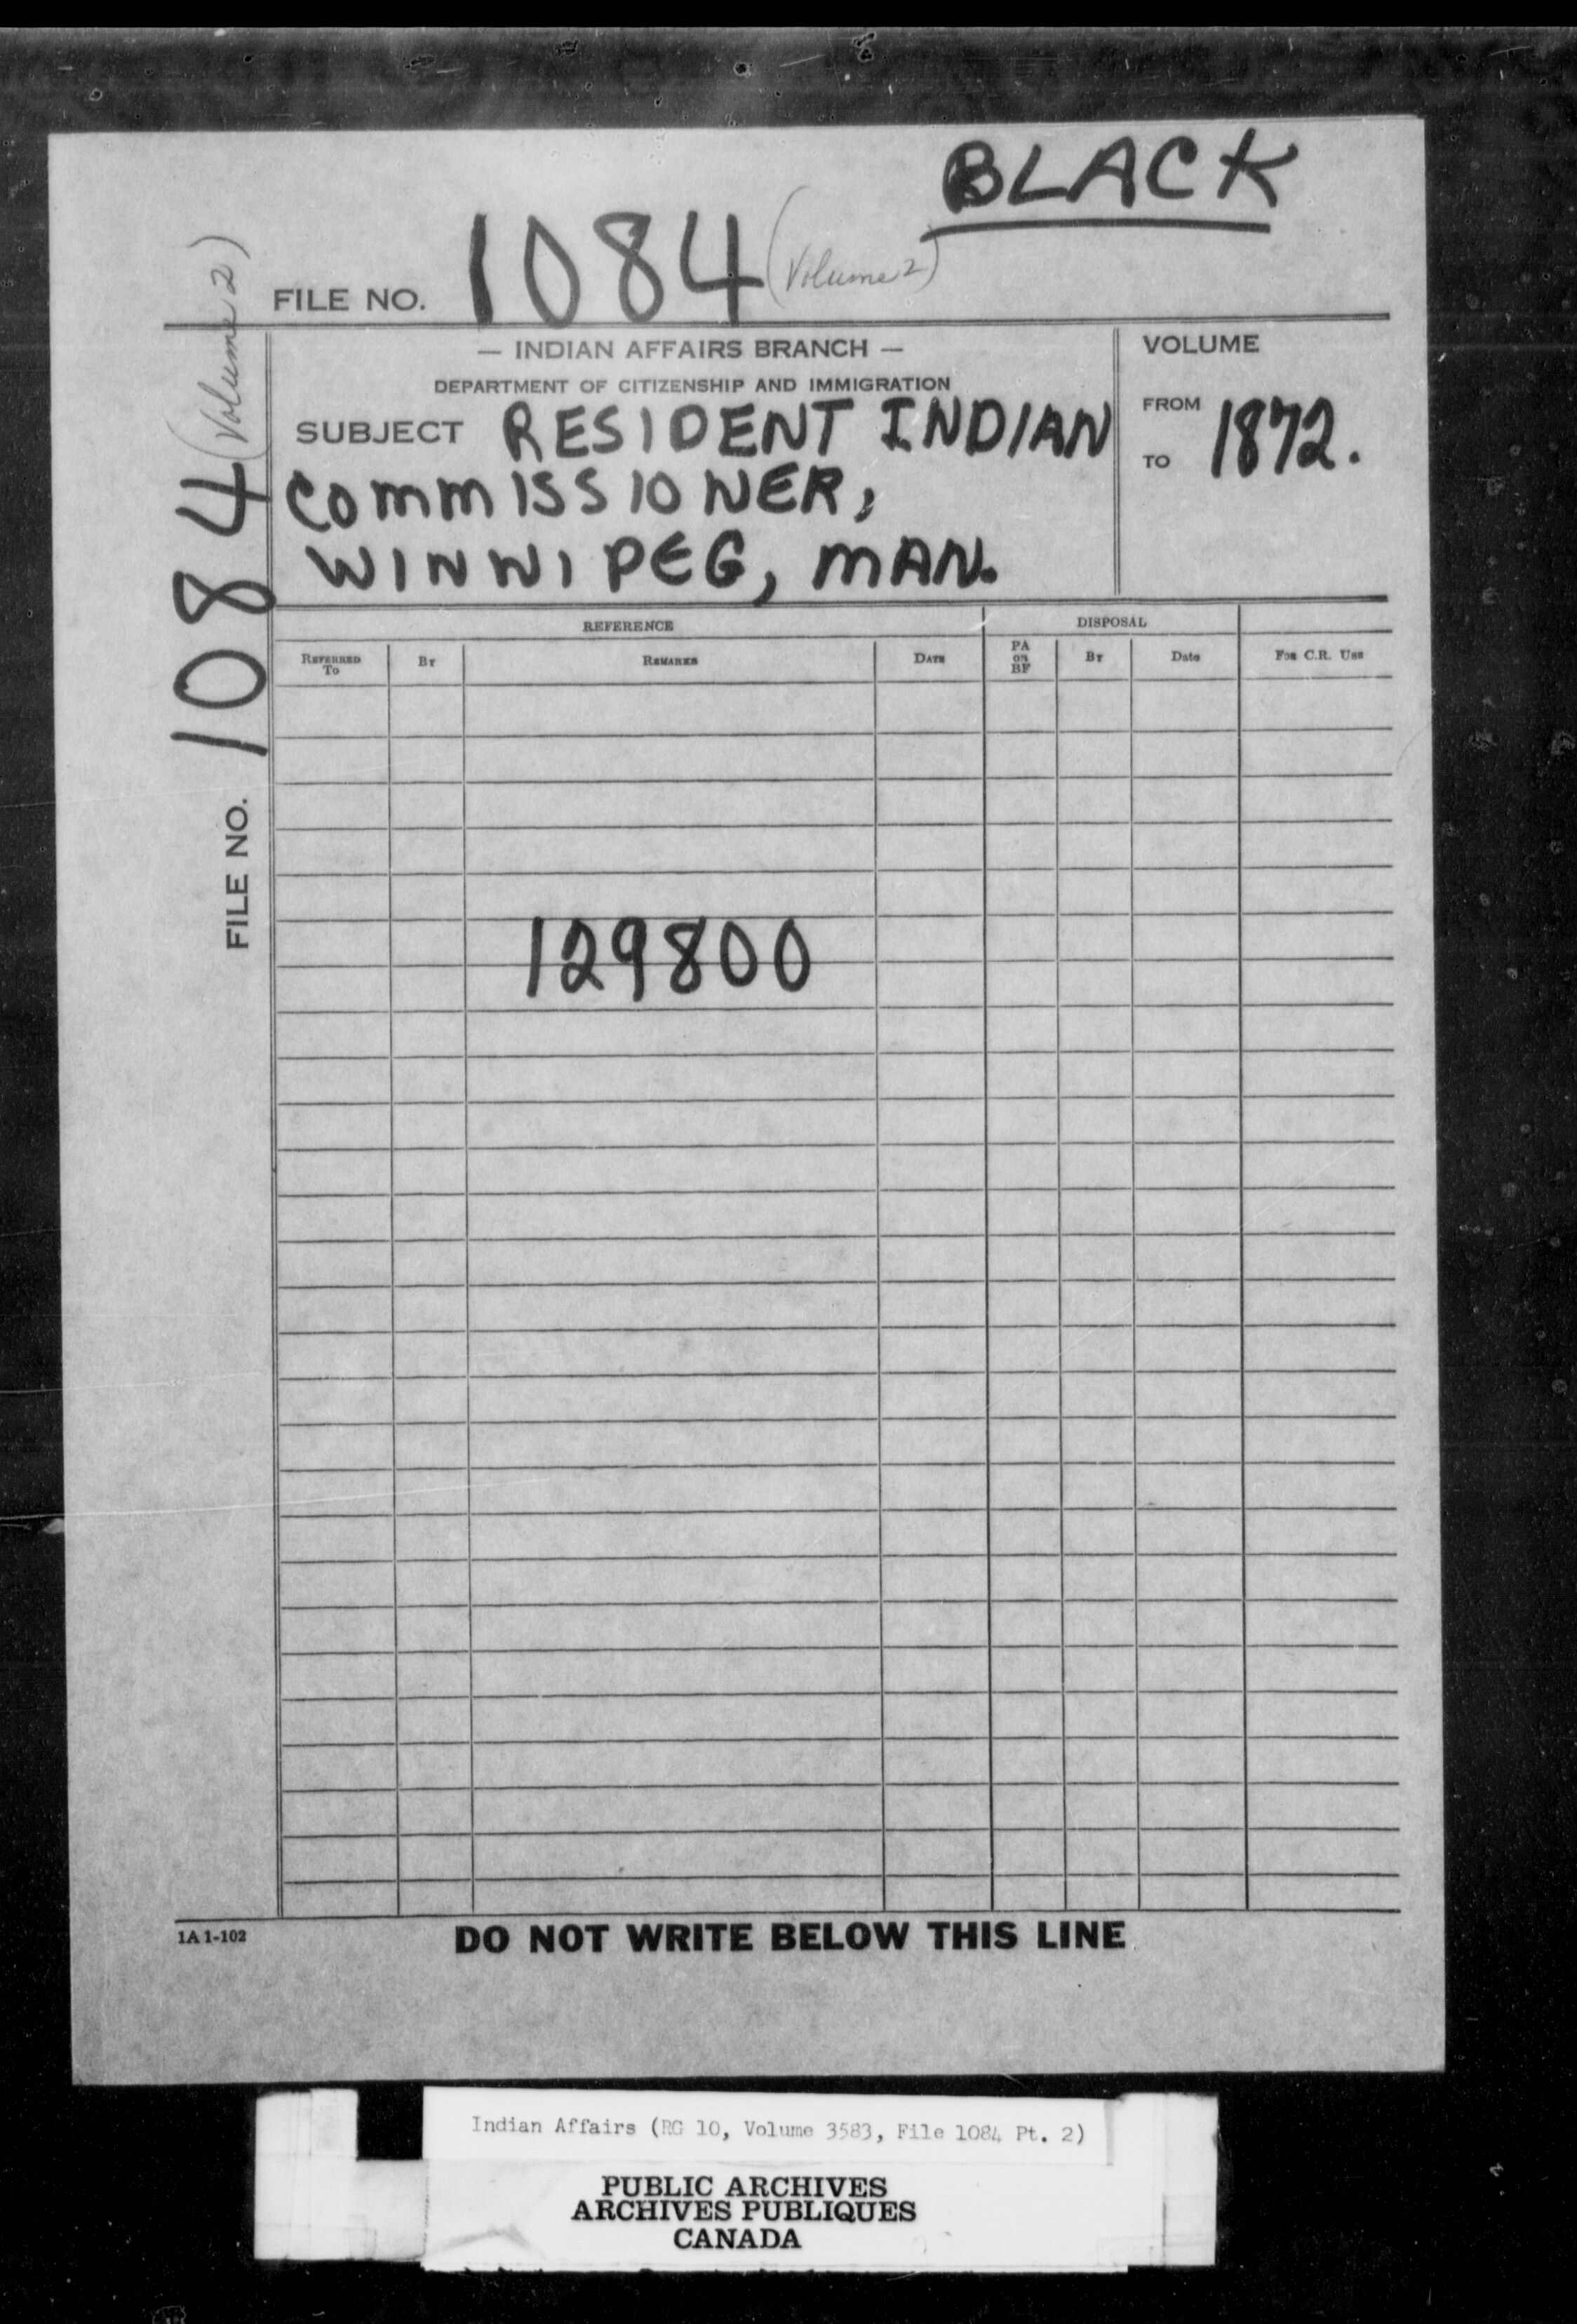 BLACK
FILE NO. 1084 (Volume 2)
— INDIAN AFFAIRS BRANCH —
DEPARTMENT OF CITIZENSHIP AND IMMIGRATION
SUBJECT RESIDENT INDIAN
COMMISSIONER,
WINNIPEG, MAN.
VOLUME
FROM
TO 1872.
FILE NO. 1084 (Volume 2)
REFERENCE DISPOSAL
REFERRED TO BY REMARKS DATE PA OR BF BY Date FOR C.R. USE
129800
1A 1-102 DO NOT WRITE BELOW THIS LINE
Indian Affairs (RG 10, Volume 3583, File 1084 Pt. 2)
PUBLIC ARCHIVES
ARCHIVES PUBLIQUES
CANADA